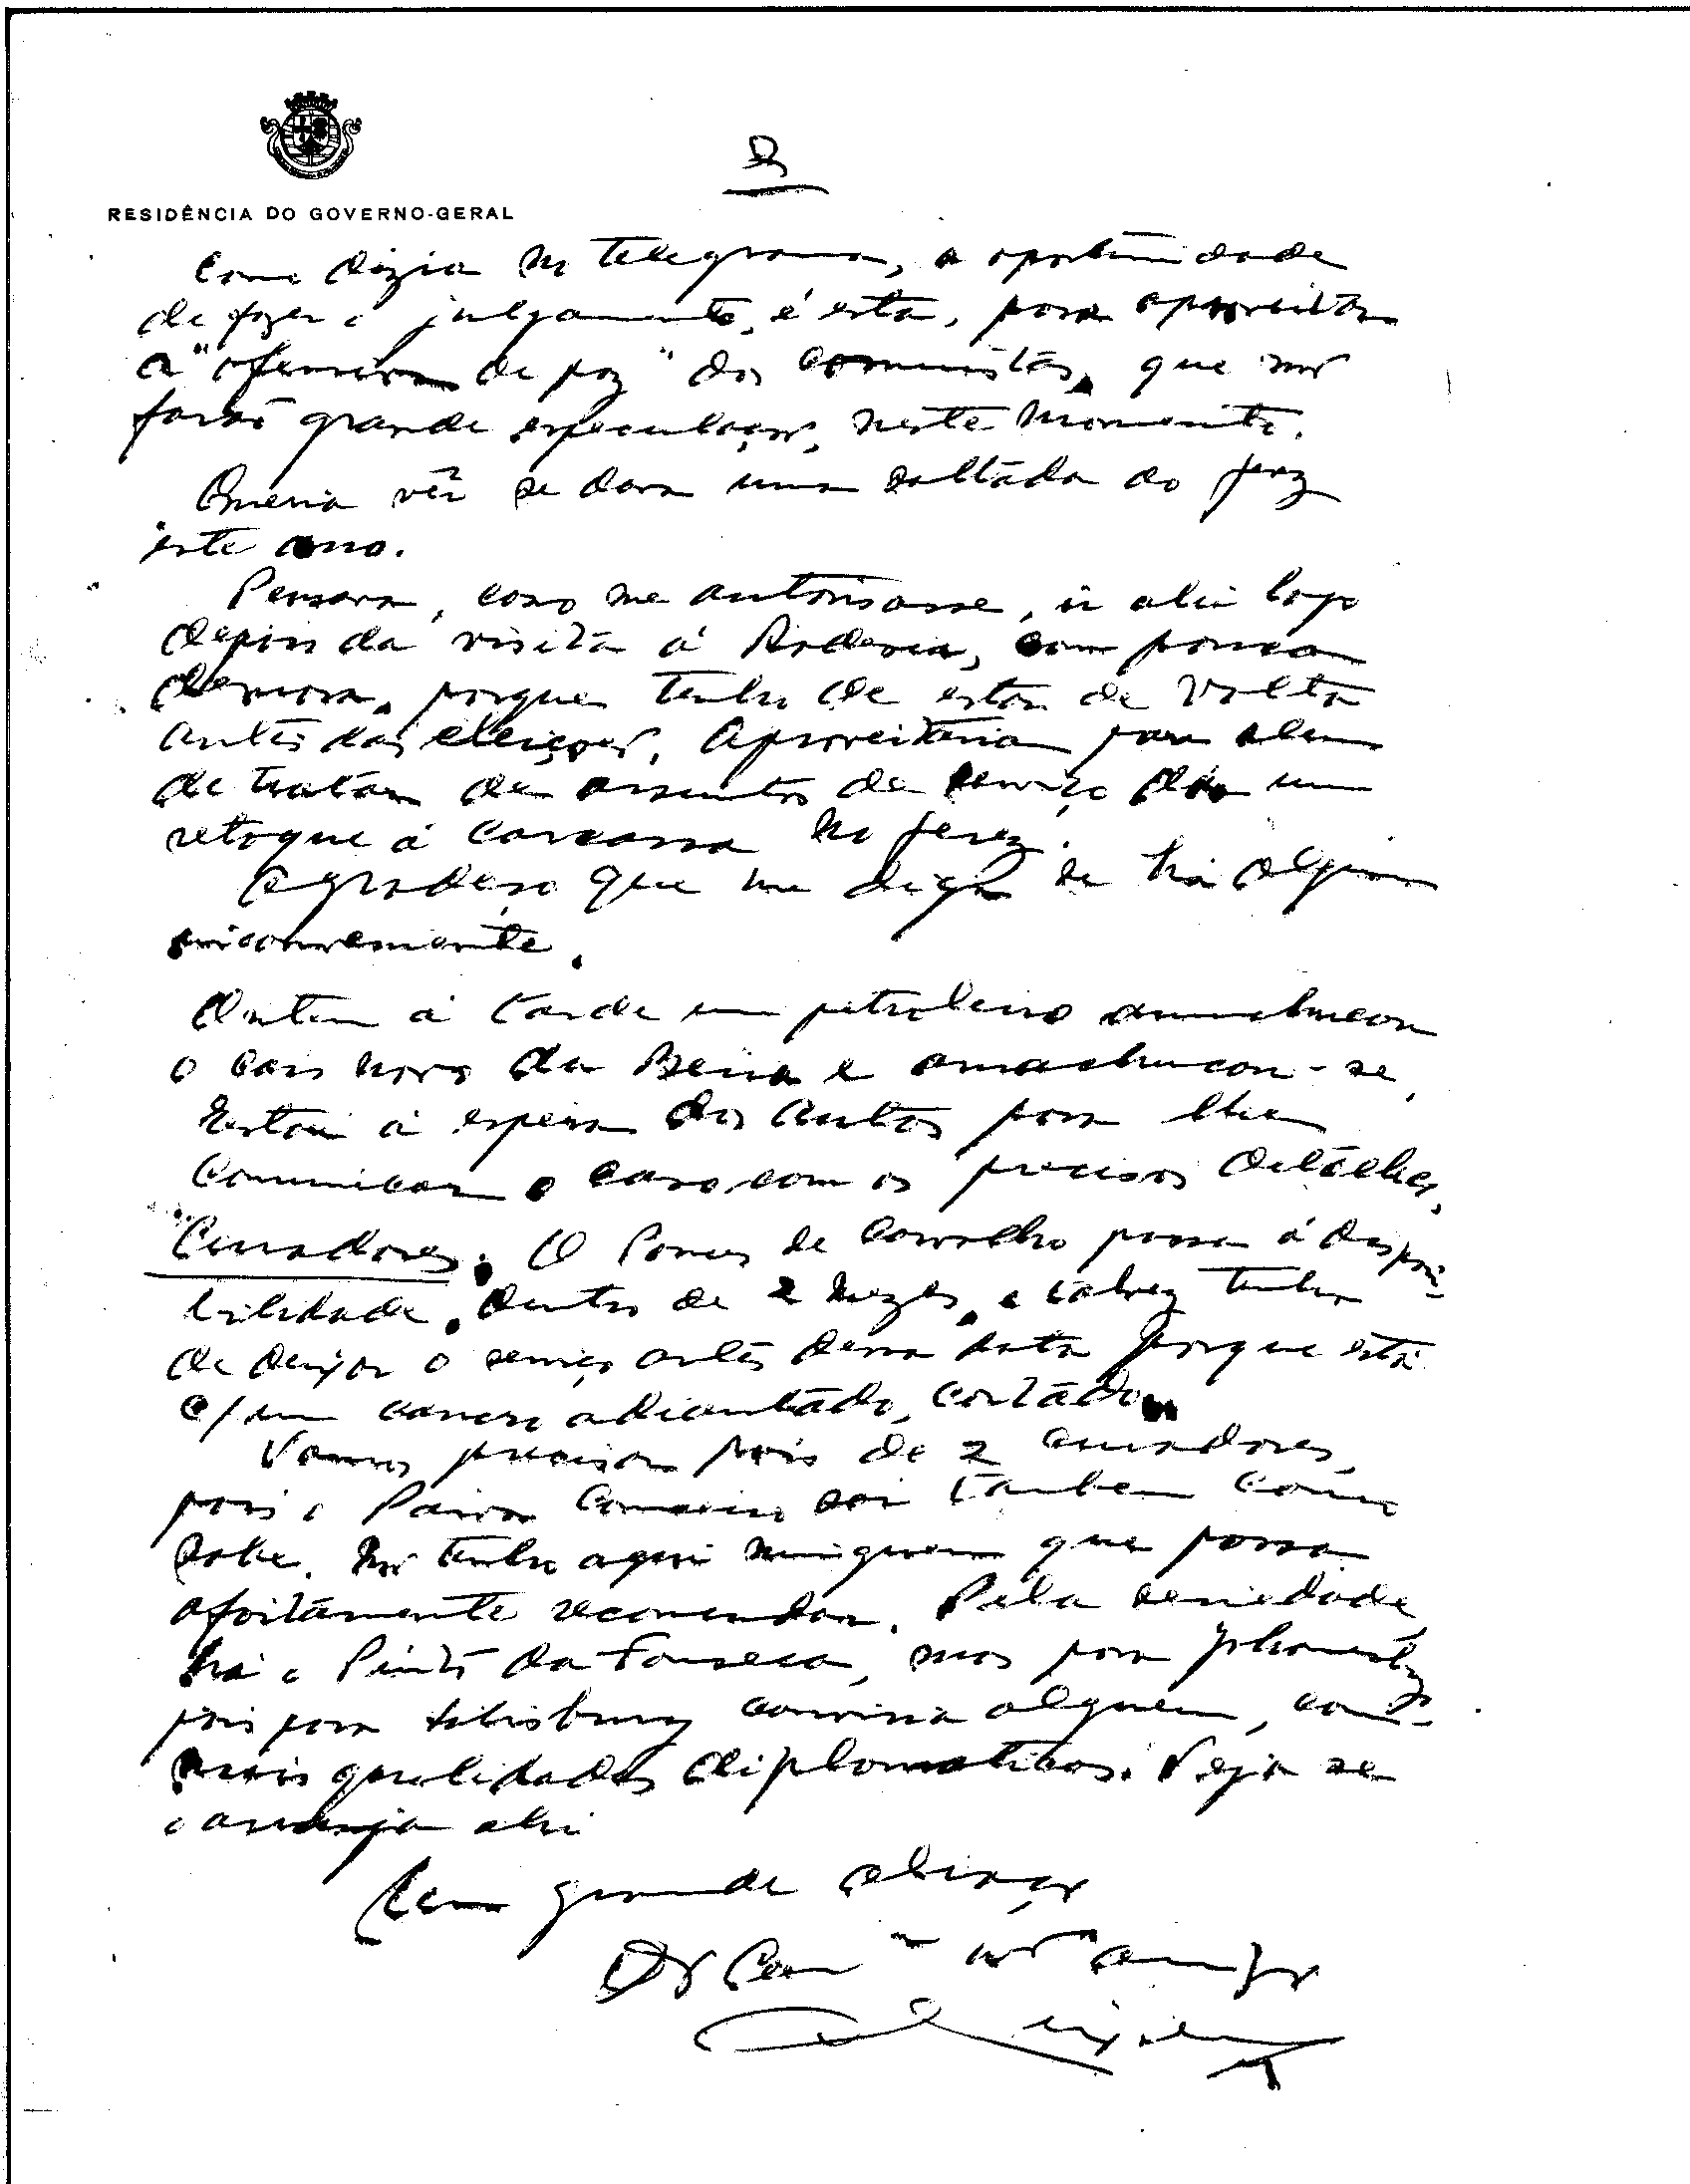 2
RESIDÊNCIA DO GOVERNO-GERAL
Como dizia no telegrama, a oportunidade
de fazer o julgamento, é esta, para aproveitar
a "ofensiva de paz" dos comunistas, que não
farão grande especulação, neste momento.
Queria vêr se dava uma saltada ao Jerez
este ano.
Pensava, caso me autorisasse, ir ahi logo
depois da visita á Rodesia, com pouca
demora, porque tenho de estar de volta
antes das eleições. Aproveitaria para alem
de tratar de assuntos de serviço dar um
retoque á carcassa no Jerez.
Agradeço que me diga se ha algum
inconveniente.
Ontem á tarde um petroleiro amachucou
o cais novo da Beira e amachucou-se.
Estou á espera dos autos para lhe
comunicar o caso com os precisos detalhes.
Curadores. O Pomes de Carvalho passa á disponi-
bilidade, dentro de 2 mezes, e talvez tenha
de deixar o serviço antes dessa data porque está
c/ um cancro adiantado, coitado
Vamos precisar pois de 2 curadores,
pois o Paiva Carneiro sai tambem como
sabe. Não tenho aqui ninguem que possa
afoitamente recomendar. Pela seriedade
ha o Pinto da Fonseca, mas para
pois para Salisbury convinha alguem, com
mais qualidades diplomaticas. Veja se
o arranja ahi
Com grande abraço
amigo